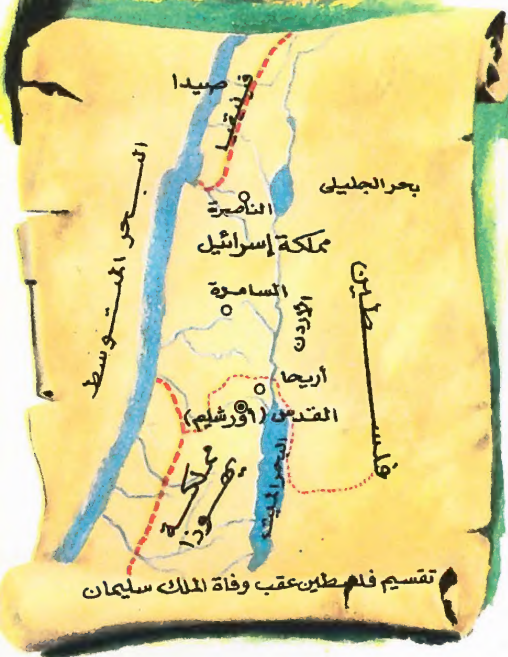 صيدا
فينيقيا
البحر المتوسط
بحر الجليلى
الناصرة
مملكة إسرائيل
السامرة
الأردن
فلسطين
أريحا
المقدس (أورشليم)
البحر الميت
مملكة
يهوزا
تقسيم فلسطين عقب وفاة الملك سليمان